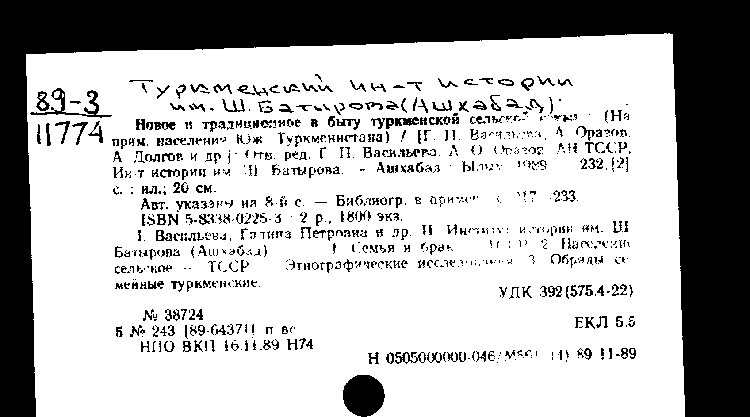 Туркменский ин-т истории
89-3 им. Ш. Батырова (Ашхабад).
11774 Новое и традиционное в быту туркменской сельской семьи : (На
прим. населения Юж. Туркменистана) / [Г. П. Васильева, А. Оразов,
А. Долгов и др.]; Отв. ред. Г. П. Васильева, А. О. Оразов; АН ТССР,
Ин-т истории им. Ш. Батырова. - Ашхабад : Ылым, 1989. - 232,[2]
с. : ил.; 20 см.
Авт. указаны на 8-й с. — Библиогр. в примеч.: с. 217-233.
ISBN 5-8338-0225-3 : 2 р., 1800 экз.
I. Васильева, Галина Петровна и др. II. Институт истории им. Ш.
Батырова (Ашхабад) 1. Семья и брак 2. Население
сельское — ТССР Этнографические исследования 3. Обряды се-
мейные туркменские.
УДК 392(575.4-22)
№ 38724
Б № 243 [89-64371] п вс
ЕКЛ 5.5
НПО ВКП 16.11.89 Н74
Н 0505000000-046/ 89 11-89